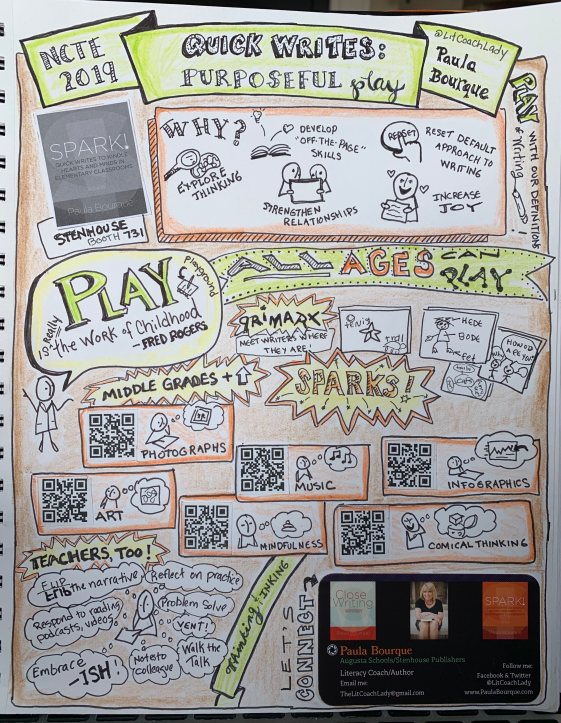 NCTE
2019
QUICK WRITES:
PURPOSEFUL play
@LitCoachLady
Paula
Bourque
PLAY WITH OUR DEFINITIONS
of Writing
SPARK!
QUICK WRITES TO KINDLE
HEARTS AND MINDS IN
ELEMENTARY CLASSROOMS
Paula Bourque
STENHOUSE
BOOTH 731
WHY?
EXPLORE
THINKING
DEVELOP
"OFF-THE-PAGE"
SKILLS
STRENGTHEN
RELATIONSHIPS
RESET
RESET DEFAULT
APPROACH TO
WRITING
INCREASE
JOY
PLAY
playground
is Really
the Work of Childhood
-FRED ROGERS
ALL AGES CAN
PLAY
PRIMARY
MEET WRITERS WHERE
THEY ARE!
HEDE
BODE
HOW OD
ARE YOU?
MIDDLE GRADES +
SPARKS!
PHOTOGRAPHS
MUSIC
INFOGRAPHICS
ART
MINDFULNESS
COMICAL THINKING
TEACHERS, TOO!
FLIP
the narrative
Reflect on practice
Respond to reading
podcasts, videos
Problem Solve
VENT!
Embrace -ISH!
Note to
colleague
Walk the
Talk
Thinking & INKING
LET'S
CONNECT?
Close
Writing
SPARK!
Paula Bourque
Augusta Schools/Stenhouse Publishers
Literacy Coach/Author
Email me:
TheLitCoachLady@gmail.com
Follow me:
Facebook & Twitter
@LitCoachLady
www.PaulaBourque.com